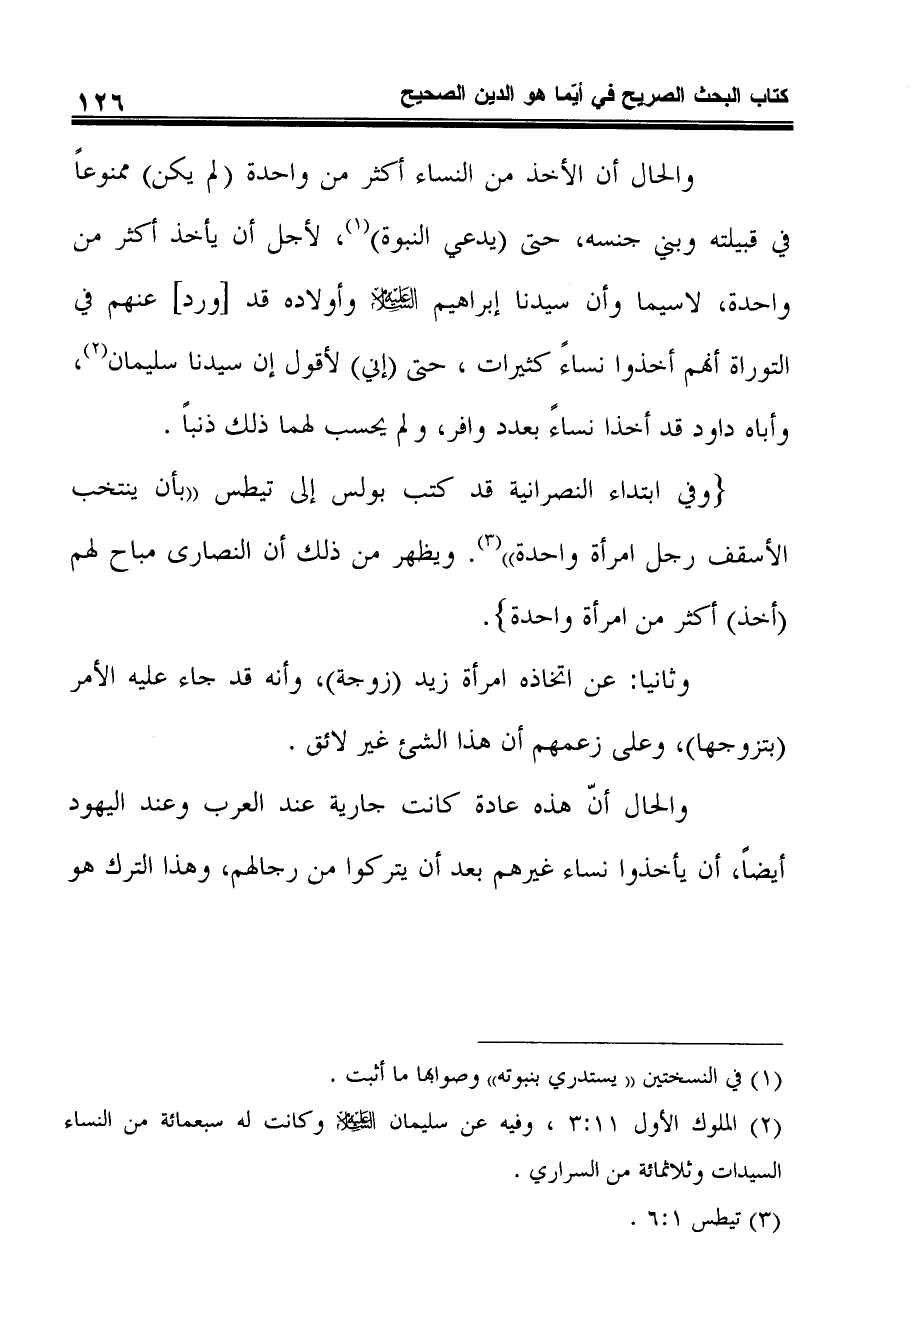 كتاب البحث الصريح في أيّما هو الدين الصحيح ١٢٦
والحال أن الأخذ من النساء أكثر من واحدة (لم يكن) ممنوعاً
في قبيلته وبني جنسه، حتى (يدعي النبوة)(١)، لأجل أن يأخذ أكثر من
واحدة، لاسيما وأن سيدنا إبراهيم عليه السلام وأولاده قد [ورد] عنهم في
التوراة أنهم أخذوا نساءً كثيرات ، حتى (إني) لأقول إن سيدنا سليمان(٢)،
وأباه داود قد أخذا نساءً بعدد وافر، ولم يحسب لهما ذلك ذنباً .
{وفي ابتداء النصرانية قد كتب بولس إلى تيطس ((بأن ينتخب
الأسقف رجل امرأة واحدة))(٣). ويظهر من ذلك أن النصارى مباح لهم
(أخذ) أكثر من امرأة واحدة}.
وثانيا: عن اتخاذه امرأة زيد (زوجة)، وأنه قد جاء عليه الأمر
(بتزوجها)، وعلى زعمهم أن هذا الشئ غير لائق .
والحال أنّ هذه عادة كانت جارية عند العرب وعند اليهود
أيضاً، أن يأخذوا نساء غيرهم بعد أن يتركوا من رجالهم، وهذا الترك هو
(١) في النسختين (( يستدري بنبوته)) وصوابها ما أثبت .
(٢) الملوك الأول ١١:٣ ، وفيه عن سليمان عليه السلام وكانت له سبعمائة من النساء
السيدات وثلاثمائة من السراري .
(٣) تيطس ١:٦ .